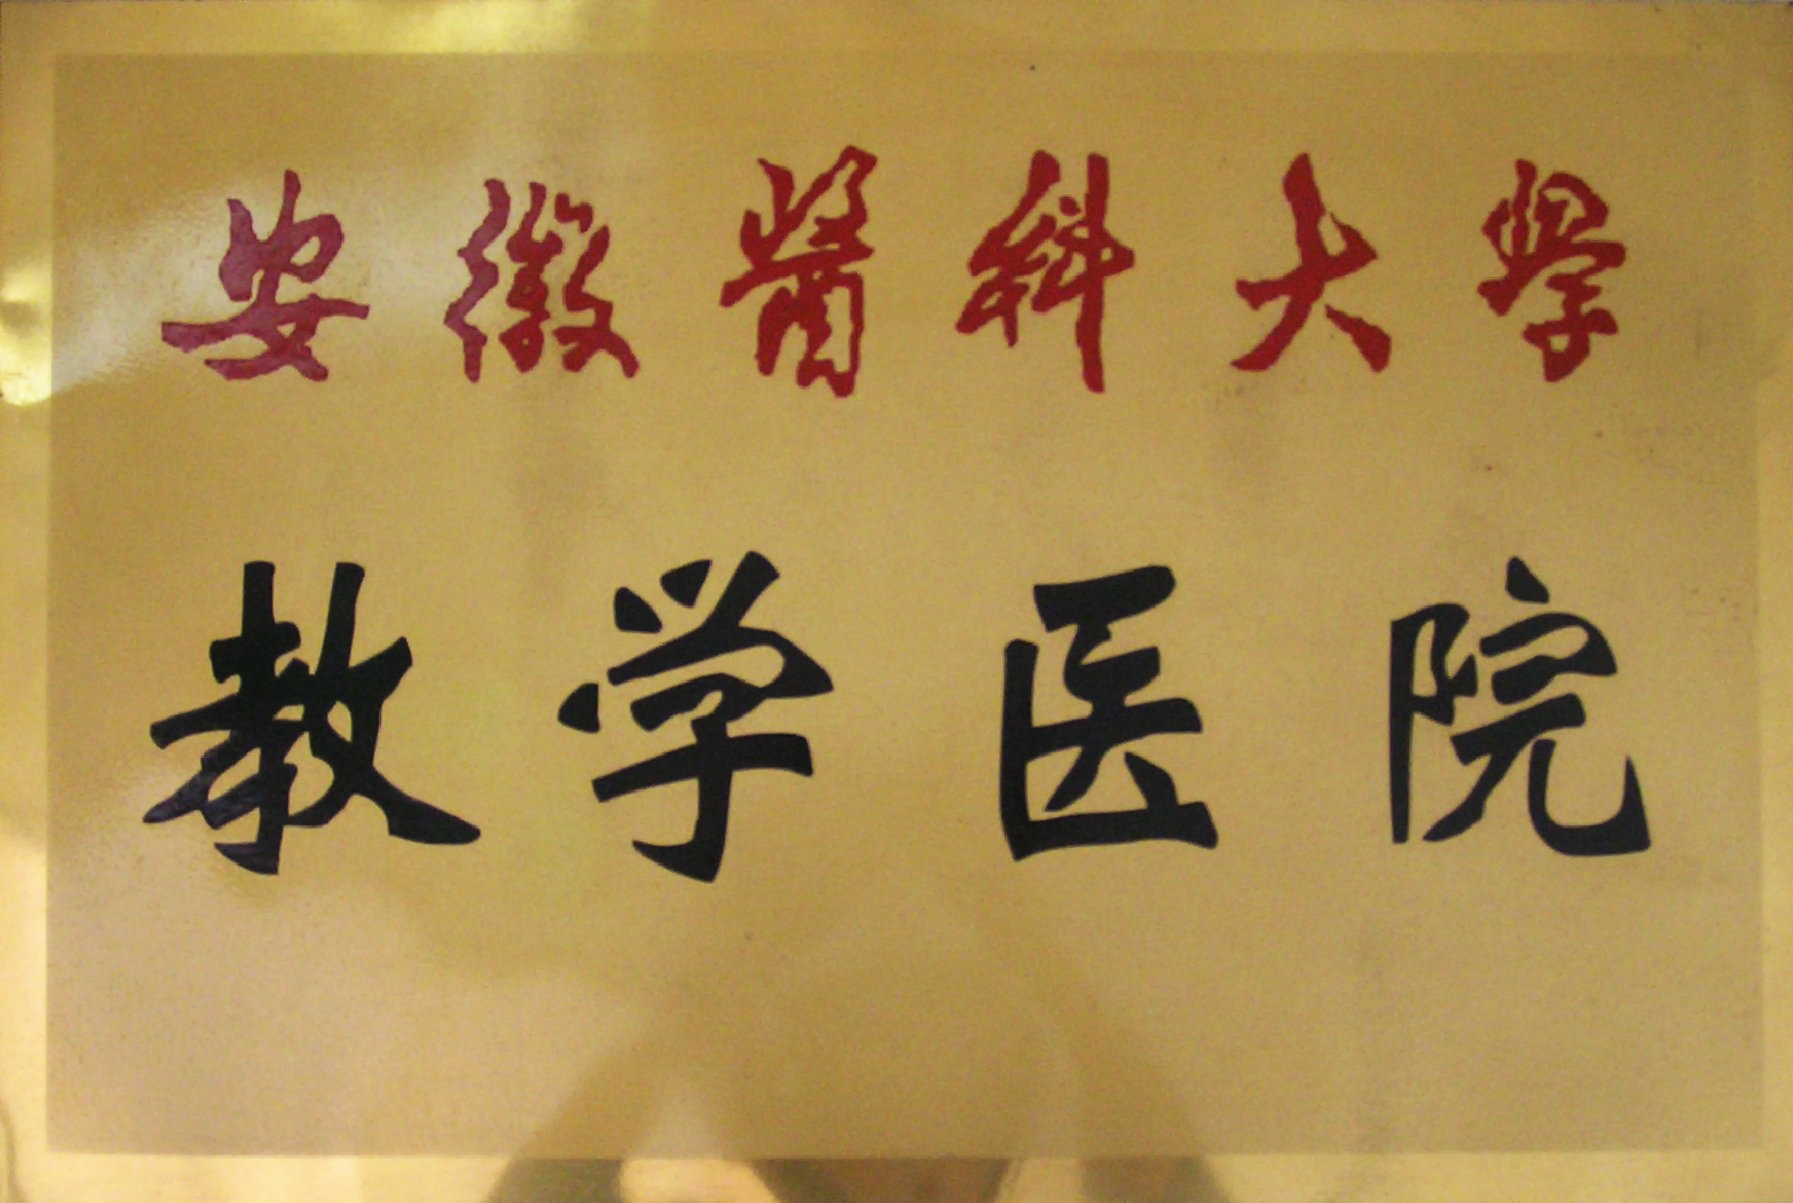 安徽醫科大學
教学医院